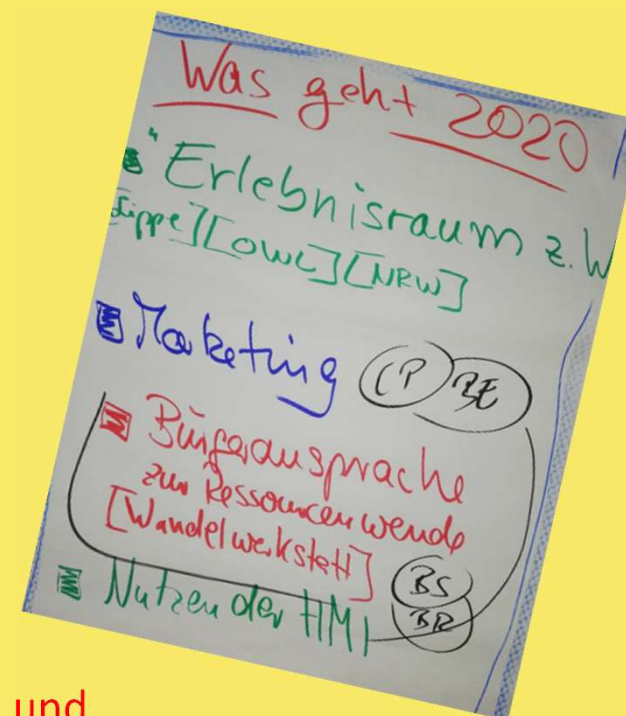 Was geht 2020
"Erlebnisraum z.W
Lippe][OWL][NRW]
Marketing CP BE
Bürgerausprache
zur Ressourcenwende
[Wandelwerkstatt]
BS
Nutzen der HMI BR
und